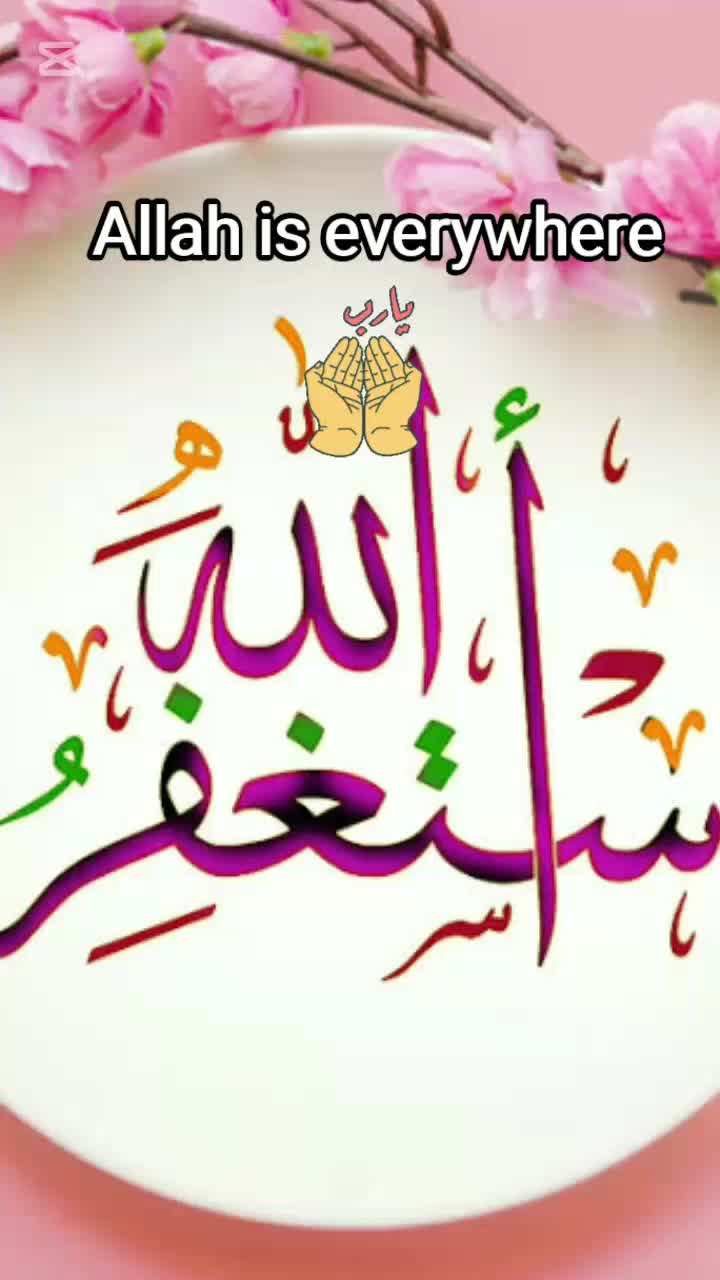 Allah is everywhere
يارب
أَسْتَغْفِرُ اللهَ